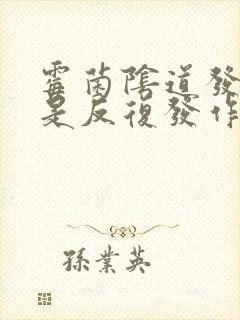 霉菌陰道發
是反復發作
孫業英